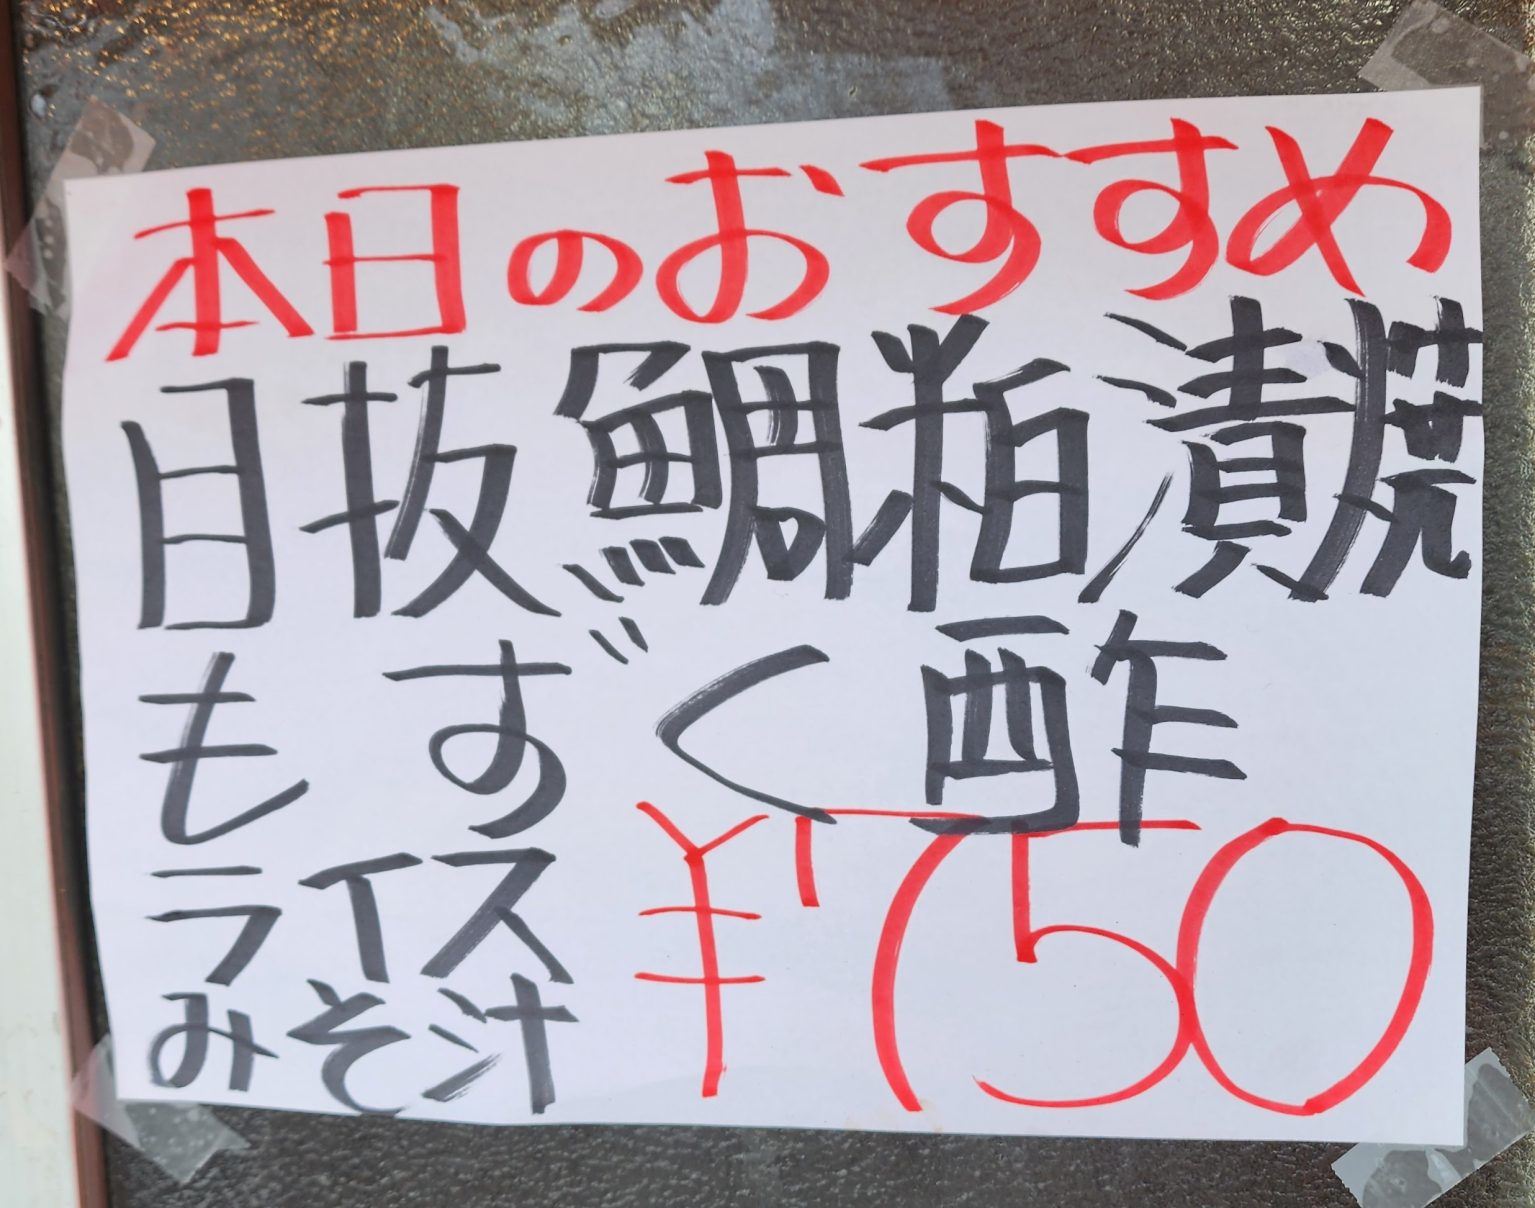 本日のおすすめ
目抜鯛粕漬焼
もずく酢
ライス
みそ汁
¥750